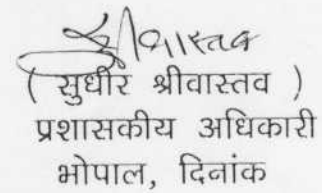 ( सुधीर श्रीवास्तव )
प्रशासकीय अधिकारी
भोपाल, दिनांक